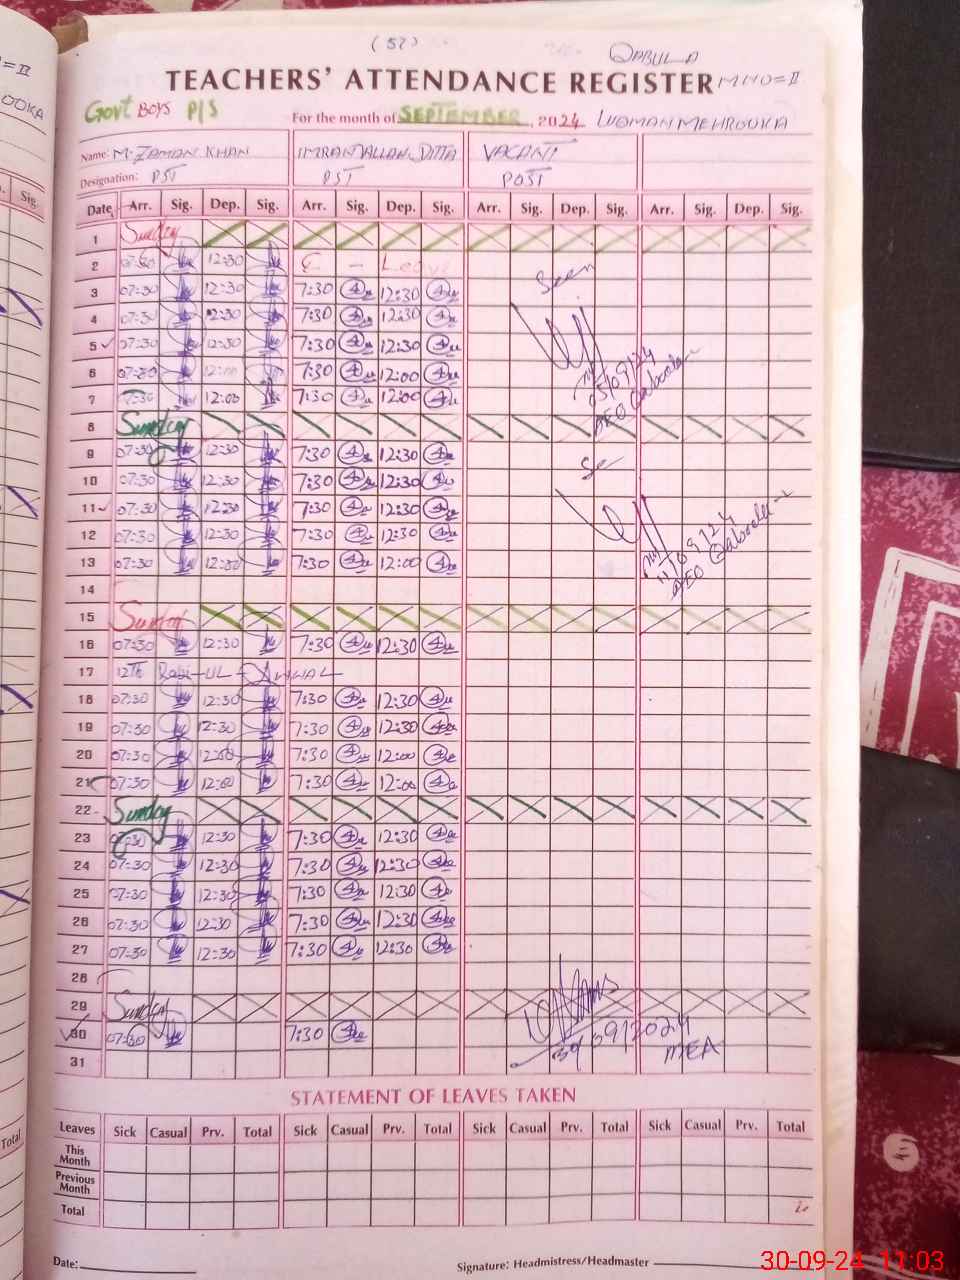 = II
OOKA
Sig.
Total
(52)
QABULA
TEACHERS' ATTENDANCE REGISTER MMO=II
Govt BOYS P/S For the month of SEPTEMBER, 2024 LUQMAN MEHROOKA
Name: M. ZAMAN KHAN IMRAN ALLAH DITTA VACANT
Designation: PST PST POST
Date Arr. Sig. Dep. Sig. Arr. Sig. Dep. Sig. Arr. Sig. Dep. Sig. Arr. Sig. Dep. Sig.
1 Sunday
2 07:30 12:30 C - Leave
Seen
3 07:30 12:30 7:30 12:30
4 07:30 12:30 7:30 12:30
5 07:30 12:30 7:30 12:30
05/09/24
6 07:30 12:00 7:30 12:00
7 7:30 12:00 7:30 12:00
AEO Qaboola
8 Sunday
9 07:30 12:30 7:30 12:30
10 07:30 12:30 7:30 12:30
11 07:30 12:30 7:30 12:30
12 07:30 12:30 7:30 12:30
11/09/24
13 07:30 12:00 7:30 12:00
AEO Qaboola-2
14
15 Sunday
16 07:30 12:30 7:30 12:30
17 12Th Rabi-UL-AWWAL
18 07:30 12:30 7:30 12:30
19 07:30 12:30 7:30 12:30
20 07:30 12:00 7:30 12:00
21 07:30 12:00 7:30 12:00
22 Sunday
23 07:30 12:30 7:30 12:30
24 07:30 12:30 7:30 12:30
25 07:30 12:30 7:30 12:30
26 07:30 12:30 7:30 12:30
27 07:30 12:30 7:30 12:30
28
29 Sunday
30 07:30 7:30 30/09/2024
MEA
31
STATEMENT OF LEAVES TAKEN
Leaves Sick Casual Prv. Total Sick Casual Prv. Total Sick Casual Prv. Total Sick Casual Prv. Total
This Month
Previous Month
Total
Date: Signature: Headmistress/Headmaster
30-09-24 11:03